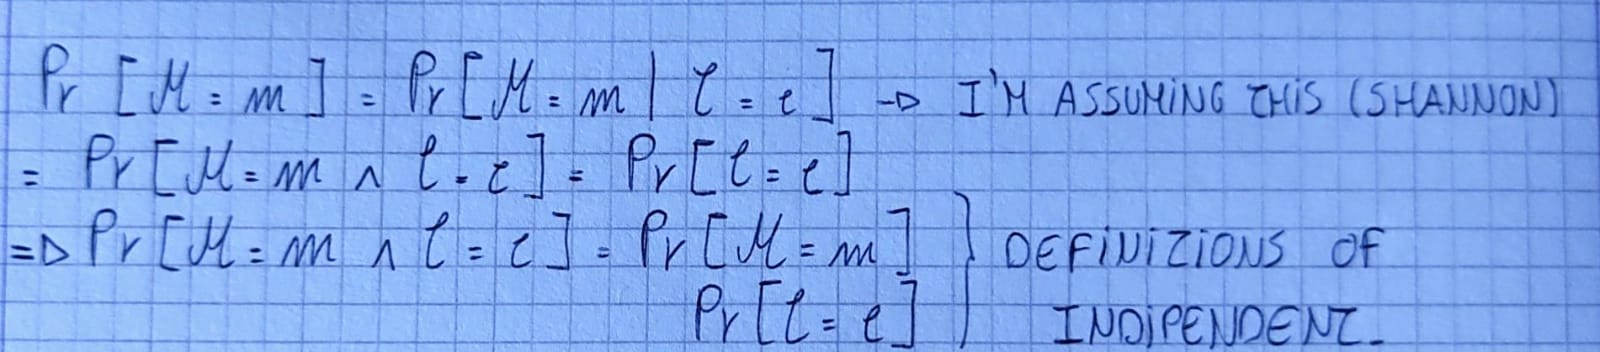 Pr [M = m] = Pr [M = m | C = c] → I'M ASSUMING THIS (SHANNON)
= Pr [M = m ∧ C = c] = Pr [C = c]
=> Pr [M = m ∧ C = c] = Pr [M = m] } DEFINIZIONS OF
Pr [C = c] INDIPENDENT.